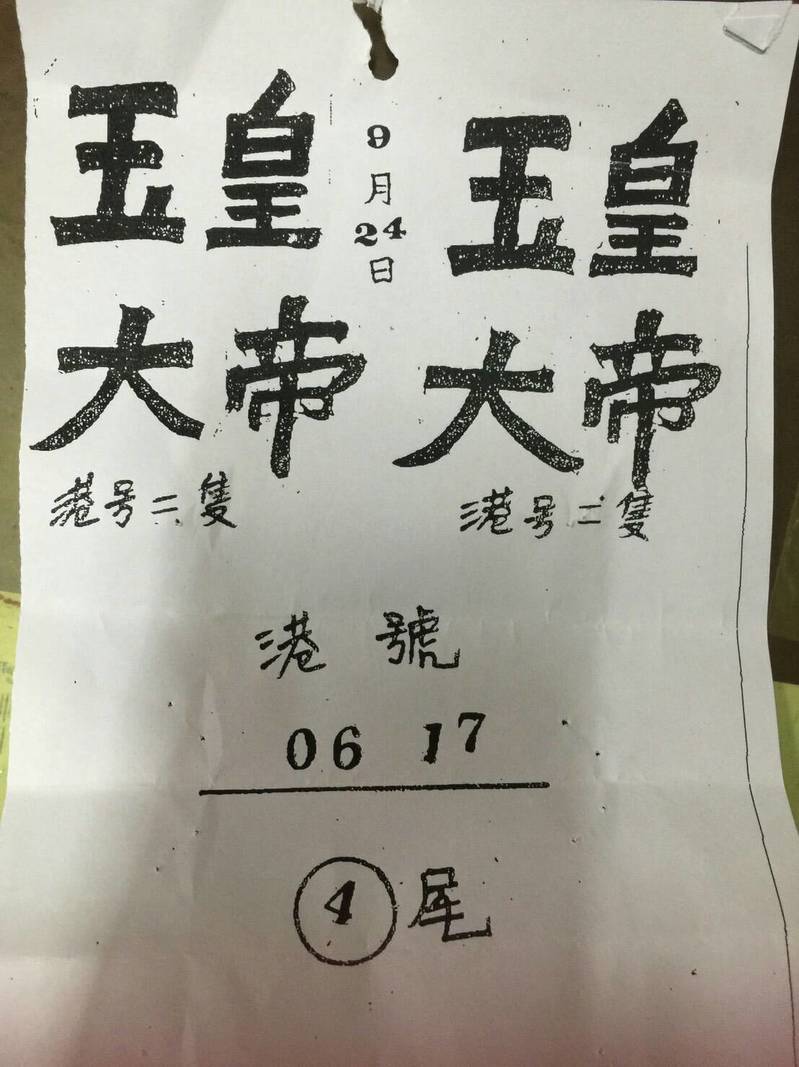 玉皇
大帝
港号二隻
9
月
24
日
玉皇
大帝
港号二隻
港號
06 17
4尾